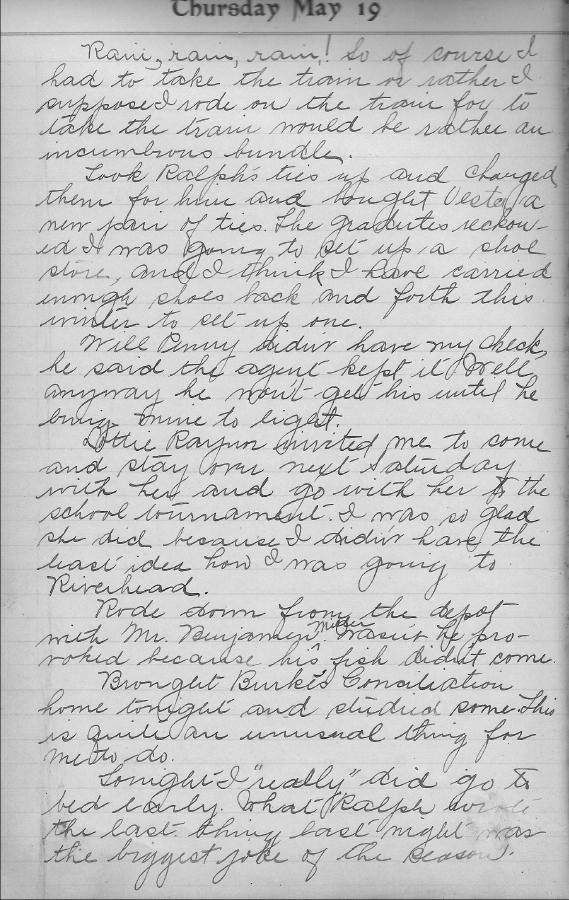 Thursday May 19
Rain, rain, rain! So of course I
had to take the train or rather I
suppose I rode on the train for to
take the train would be rather an
incumbrous bundle.
Took Ralph's ties up and changed
them for him and bought Vesta a
new pair of ties. The graduates reckon-
ed I was going to set up a shoe
store, and I think I have carried
enough shoes back and forth this
winter to set up one.
Will Penny didn't have my check,
he said the agent kept it. Well
anyway he won't get his until he
bring mine to light.
Lottie Raynor invited me to come
and stay over next Saturday
with her and go with her to the
school tournament. I was so glad
she did because I didn't have the
least idea how I was going to
Riverhead.
Rode down from the depot
with Mr. Benjamin. Wasn't he pro-
voked because his fish didn't come.
Brought Burke's Conciliation
home tonight and studied some. This
is quite an unusual thing for
me to do.
Tonight I "really" did go to
bed early. What Ralph wrote
the last thing last night was
the biggest joke of the season.